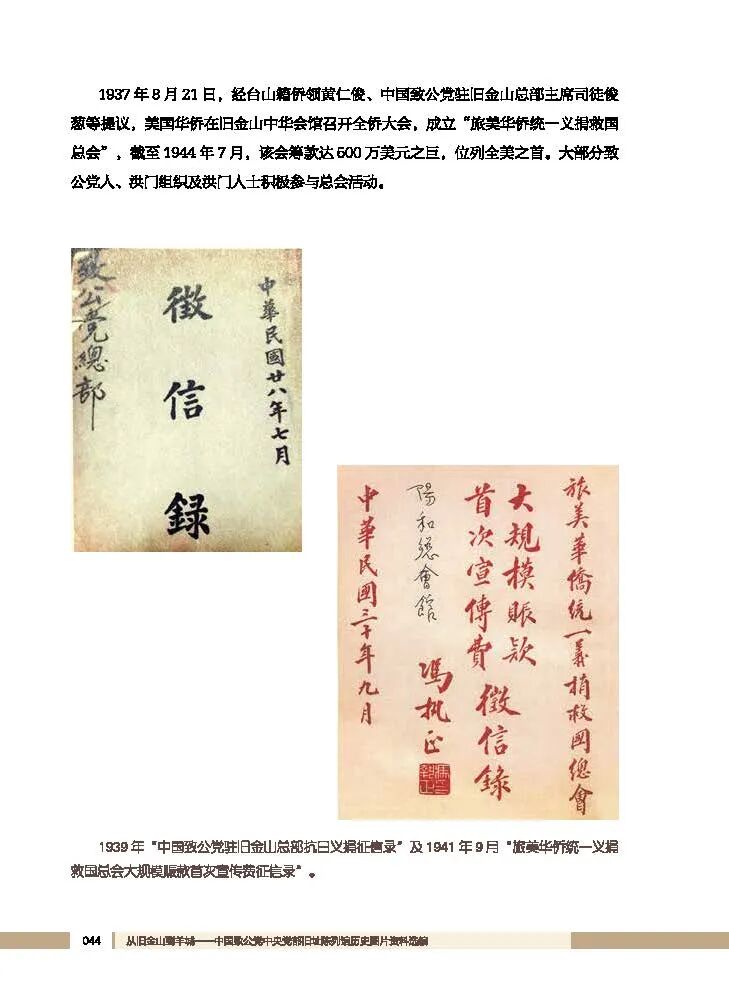 1937 年 8 月 21 日，经台山籍侨领黄仁俊、中国致公党驻旧金山总部主席司徒俊
葱等提议，美国华侨在旧金山中华会馆召开全侨大会，成立“旅美华侨统一义捐救国
总会”，截至 1944 年 7 月，该会筹款达 500 万美元之巨，位列全美之首。大部分致
公党人、洪门组织及洪门人士积极参与总会活动。
中華民國廿八年七月
徵信錄
致公党總部
旅美華僑統一義捐救國總會
大規模賑款
首次宣傳費徵信錄
陽和總會館
馮執正
中華民國三十年九月
1939 年“中国致公党驻旧金山总部抗日义捐征信录”及 1941 年 9 月“旅美华侨统一义捐
救国总会大规模赈款首次宣传费征信录”。
044
从旧金山到羊城——中国致公党中央党部旧址陈列馆历史图片资料选编